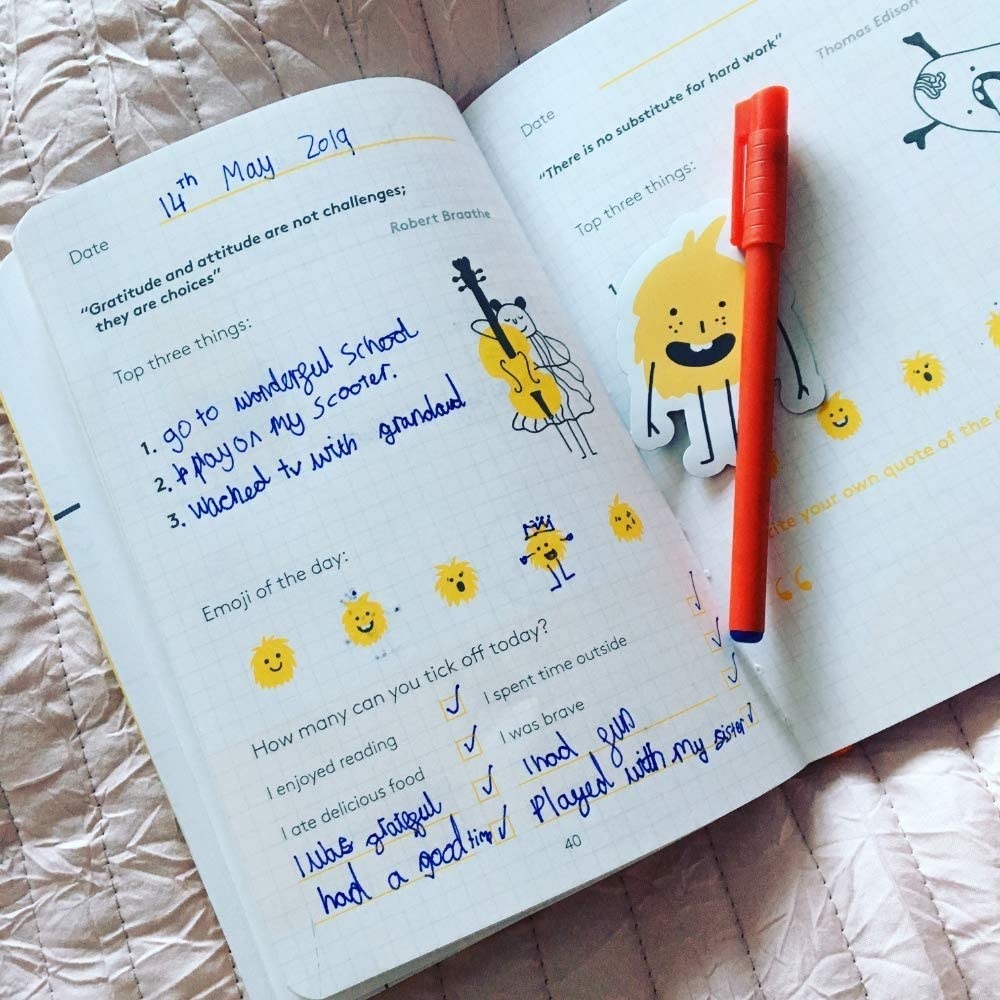 Date 14th May 2019
"Gratitude and attitude are not challenges;
they are choices"
Robert Braathe
Top three things:
1. go to wonderful school
2. play on my scooter.
3. wached tv with grandad
Emoji of the day:
How many can you tick off today?
I enjoyed reading ✓ I spent time outside ✓
I ate delicious food ✓ I was brave ✓
I was grateful ✓ I had fun ✓
had a good time ✓ Played with my sister ✓
40
Date
"There is no substitute for hard work"
Thomas Edison
Top three things:
1
your own quote of the
“